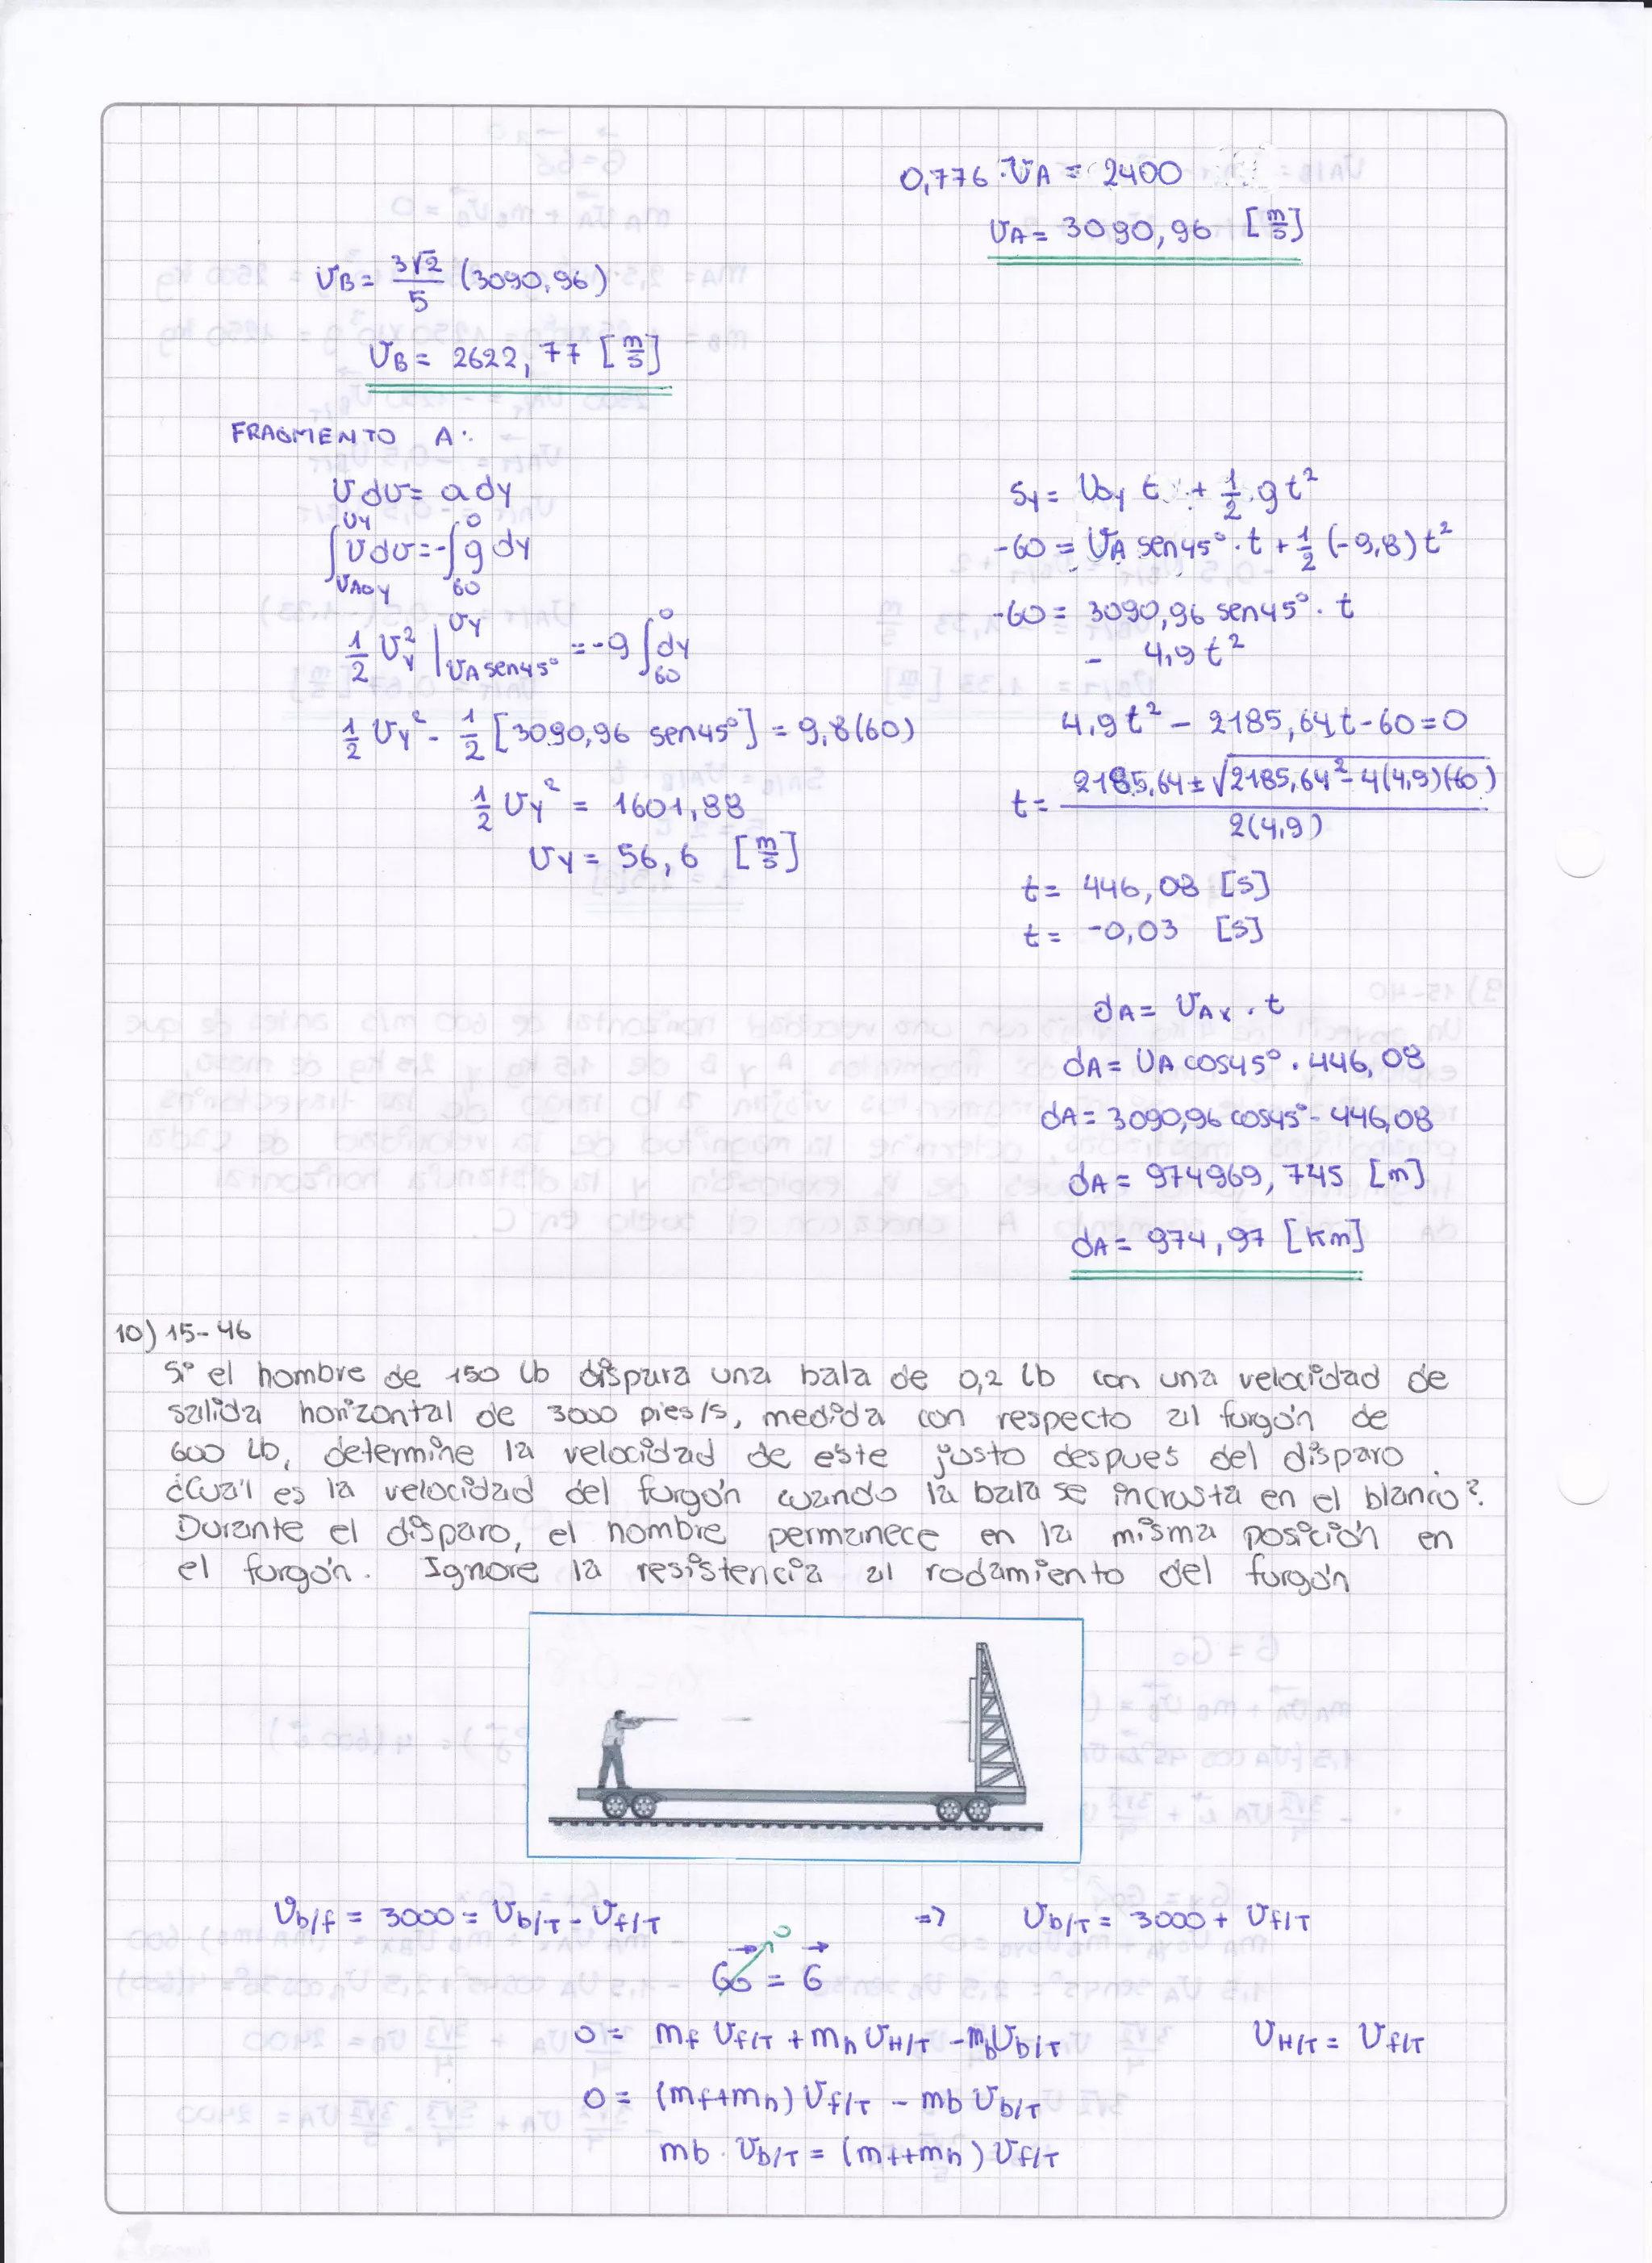 0,776 · VA = 2400
VA = 3090,96 [m/s]
VB = 3√2/5 (3090,96)
VB = 2622,77 [m/s]
FRAGMENTO A:
V dv = a dy
∫_{VAoy}^{Vy} V dv = -∫_{60}^{0} g dy
1/2 Vy² |_{VA sen45°}^{Vy} = -g ∫_{60}^{0} dy
1/2 Vy² - 1/2 [3090,96 sen45°] = 9,8(60)
1/2 Vy² = 1601,88
Vy = 56,6 [m/s]
Sy = Voy t + 1/2 g t²
-60 = VA sen45° · t + 1/2 (-9,8) t²
-60 = 3090,96 sen45° · t
- 4,9 t²
4,9 t² - 2185,64t - 60 = 0
t = (2185,64 ± √(2185,64² - 4(4,9)(-60))) / 2(4,9)
t = 446,08 [s]
t = -0,03 [s]
dA = VAx · t
dA = VA cos45° · 446,08
dA = 3090,96 cos45° - 446,08
dA = 974969,745 [m]
dA = 974,97 [Km]
10) 15-46
Si el hombre de 150 lb dispara una bala de 0,2 lb con una velocidad de
salida horizontal de 3000 pies/s, medida con respecto al furgón de
600 lb, determine la velocidad de este justo despues del disparo.
¿Cuál es la velocidad del furgón cuando la bala se incrusta en el blanco?.
Durante el disparo, el hombre permanece en la misma posición en
el furgón. Ignore la resistencia al rodamiento del furgón
Vb/f = 3000 = Vb/T - Vf/T => Vb/T = 3000 + Vf/T
0
G0 = G
0 = mf Vf/T + mh VH/T - mb Vb/T VH/T = Vf/T
0 = (mf+mh) Vf/T - mb Vb/T
mb · Vb/T = (mf+mh) Vf/T